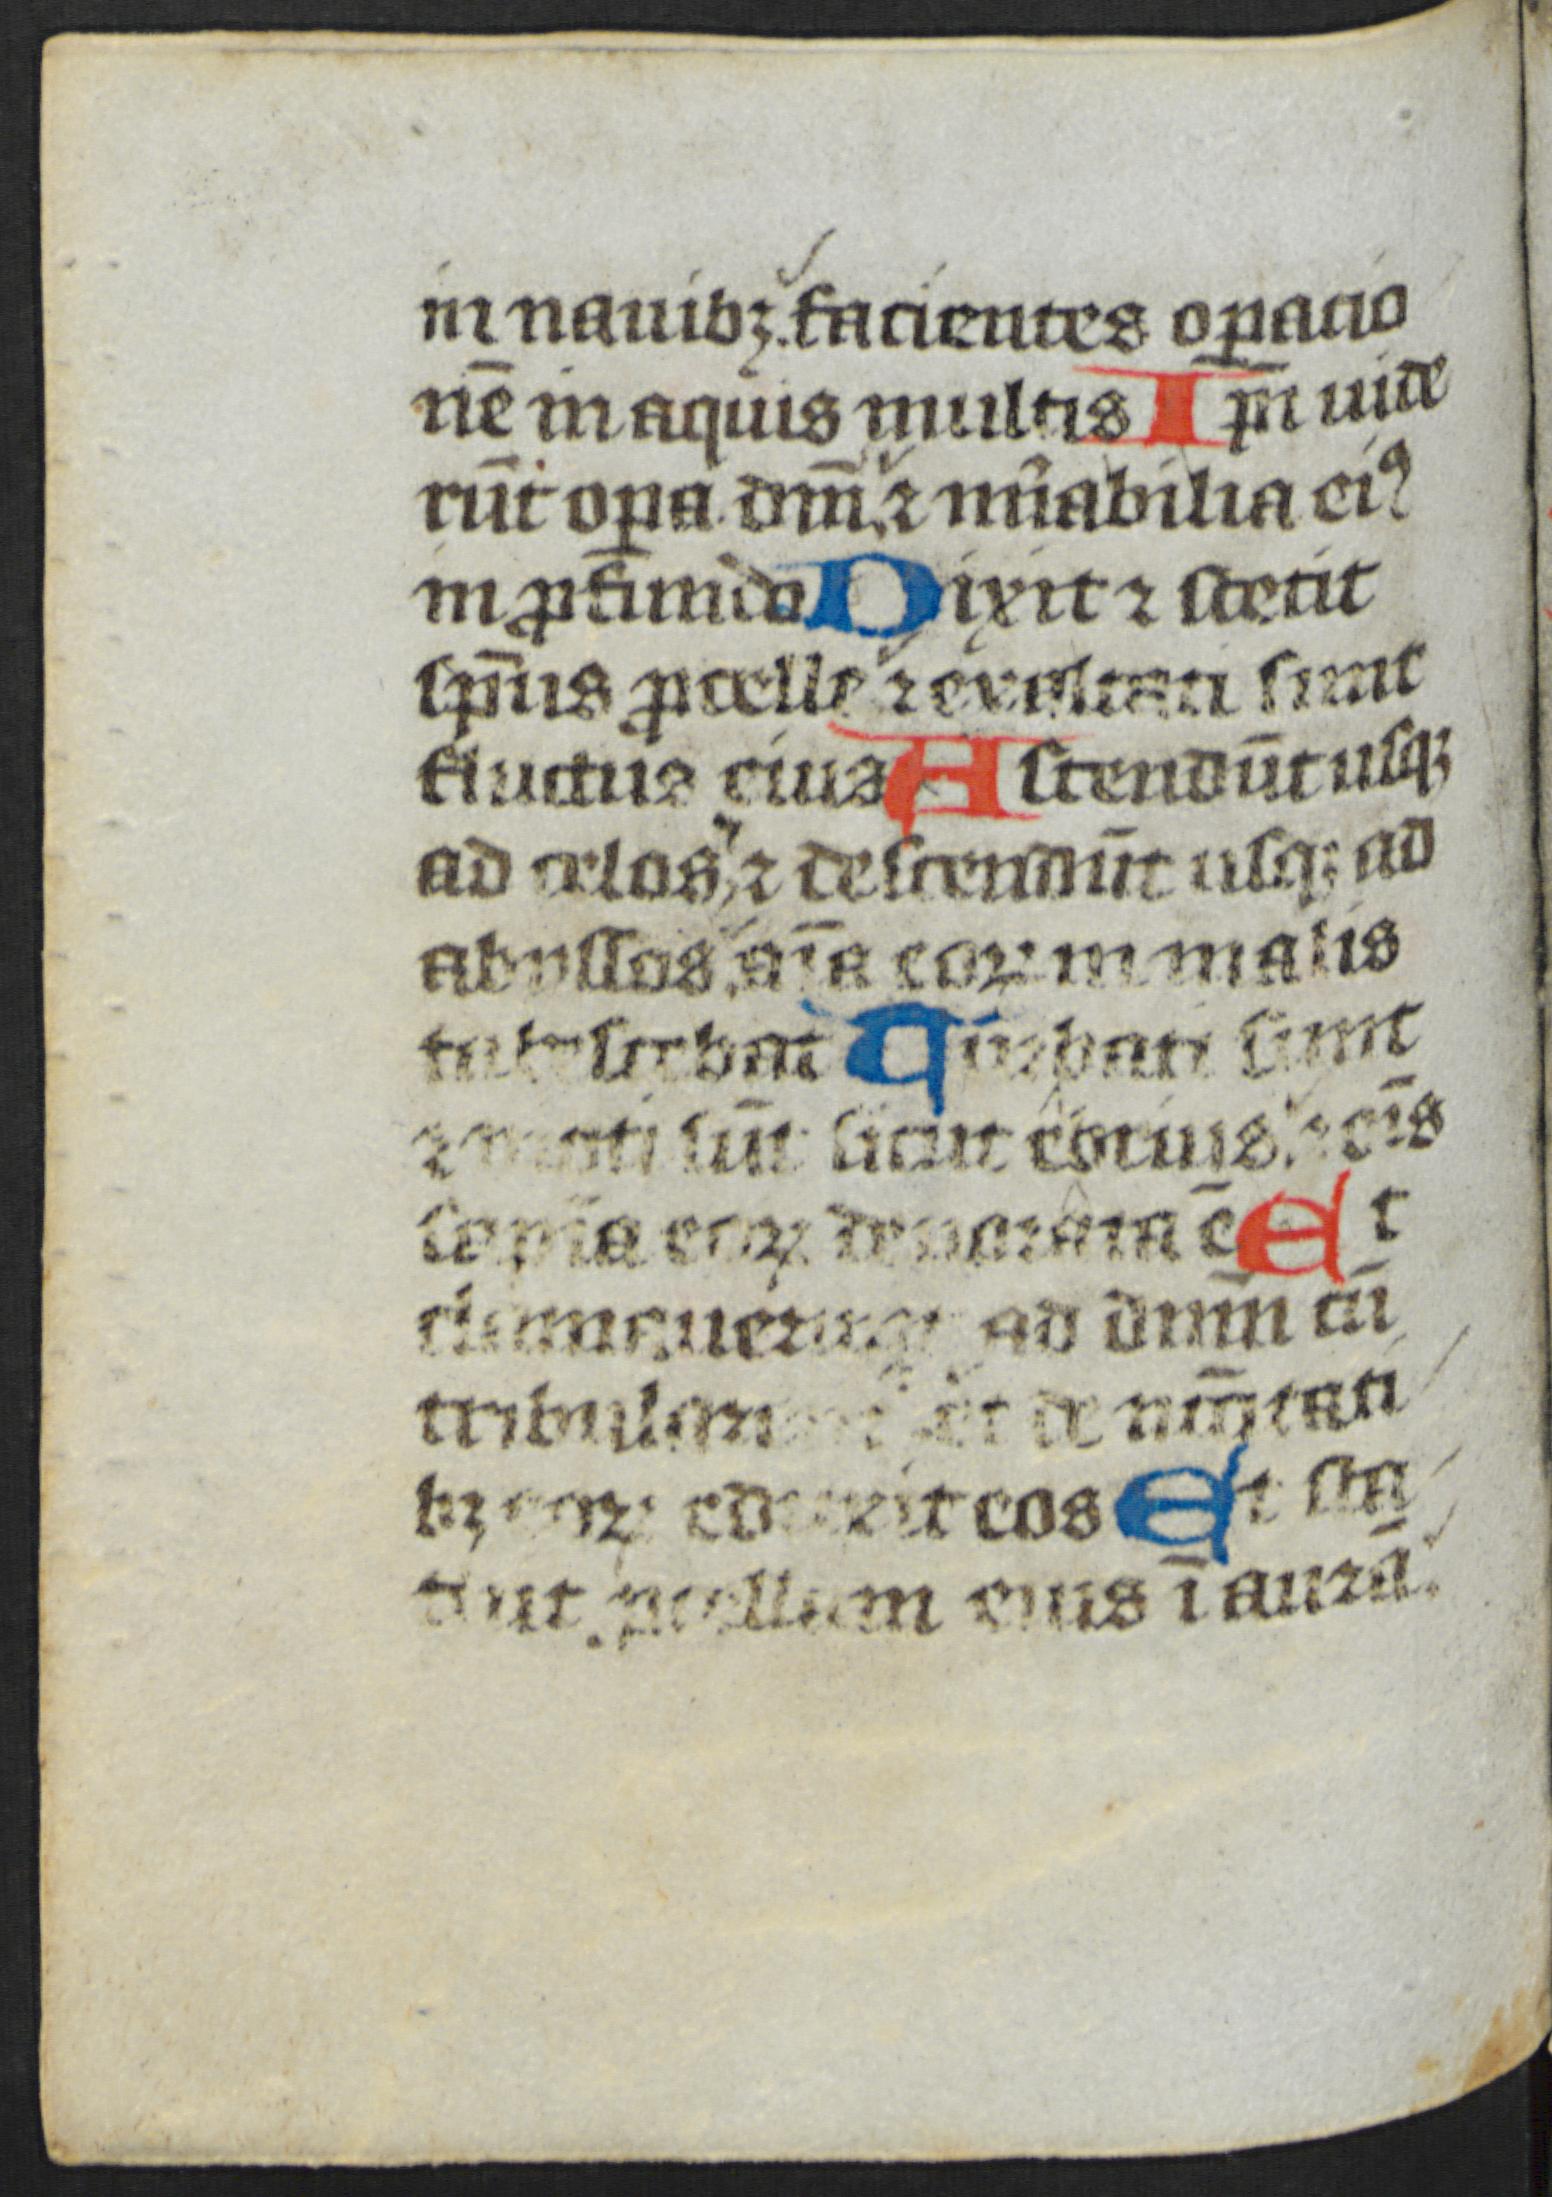 in nauibꝫ. facientes oꝑacio
nē in aquis multis Ipī uide
rūt oꝑa dn̄i ⁊ mirabilia eiꝰ
in ꝓfundo Dixit ⁊ stetit
sp̄us ꝓcelle ⁊ exaltati sunt
fluctus eius Ascendūt usqꝫ
ad celos ⁊ descendūt usqꝫ ad
abyssos, aīa eoꝝ in malis
tabescebat Turbati sunt
⁊ moti sūt sicut ebrius, ⁊ oīs
sapīa eoꝝ deuorata ē Et
clamauerunt ad dn̄m cū
tribularentur et de necītati
bꝫ eoꝝ eduxit eos Et sta
tuit ꝓcellam eius ī aurā.